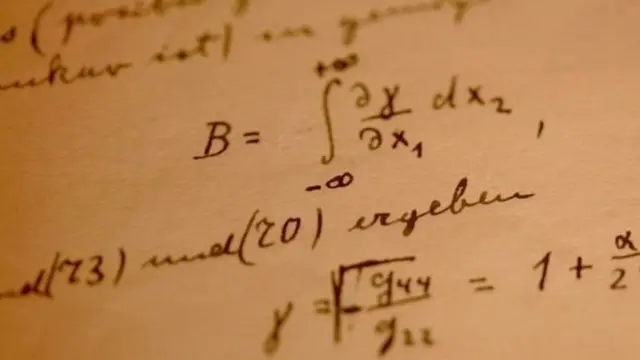 ist) in
B = ∫_{-∞}^{+∞} ∂γ/∂x₁ dx₂ ,
(73) und (70) ergeben
γ = √(-g₄₄/g₂₂) = 1 + α/2